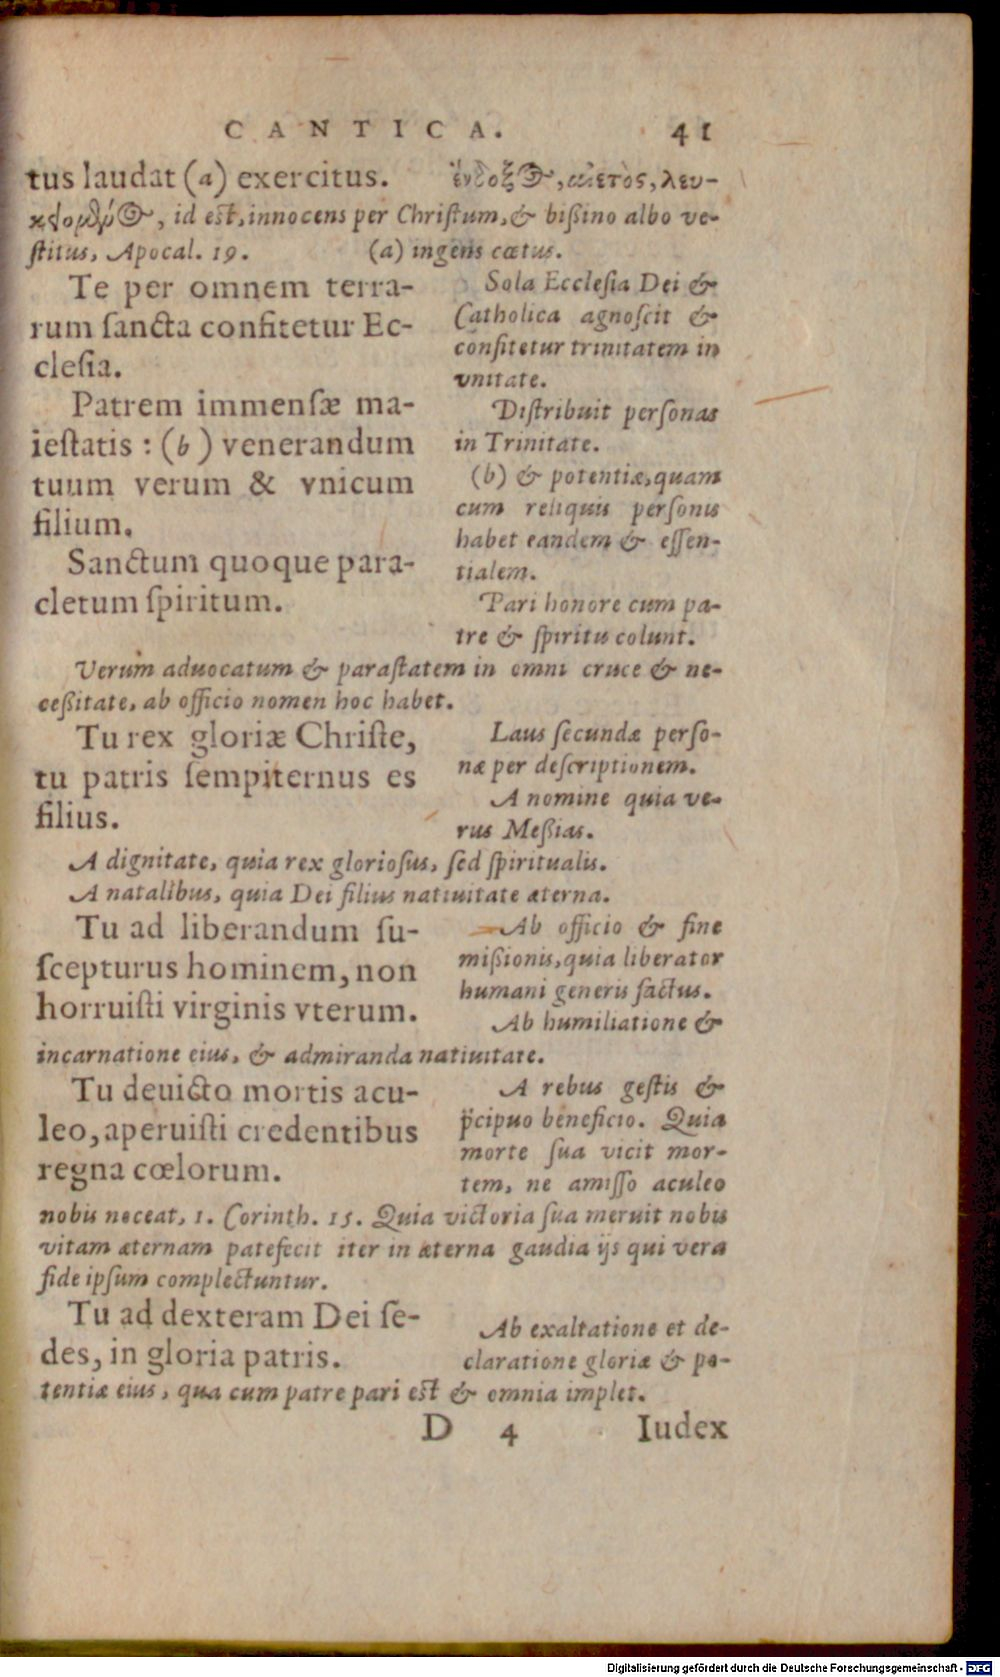 CANTICA. 41
tus laudat (a) exercitus.
ἔνδοξος, αἰετὸς, λευ-
id est, innocens per Christum, & bißino albo ve-
stitus, Apocal. 19. (a) ingens cœtus.
Te per omnem terra-
rum sancta confitetur Ec-
clesia.
Sola Ecclesia Dei &
Catholica agnoscit &
confitetur trinitatem in
vnitate.
Patrem immensæ ma-
iestatis : (b) venerandum
tuum verum & vnicum
filium.
Distribuit personas
in Trinitate.
(b) & potentiæ, quam
cum reliquis personis
habet eandem & essen-
tialem.
Sanctum quoque para-
cletum spiritum.
Pari honore cum pa-
tre & spiritu colunt.
Verum aduocatum & parastatem in omni cruce & ne-
ceßitate, ab officio nomen hoc habet.
Tu rex gloriæ Christe,
tu patris sempiternus es
filius.
Laus secundæ perso-
næ per descriptionem.
A nomine quia ve-
rus Meßias.
A dignitate, quia rex gloriosus, sed spiritualis.
A natalibus, quia Dei filius natiuitate æterna.
Tu ad liberandum su-
scepturus hominem, non
horruisti virginis vterum.
Ab officio & fine
mißionis, quia liberator
humani generis factus.
Ab humiliatione &
incarnatione eius, & admiranda natiuitate.
Tu deuicto mortis acu-
leo, aperuisti credentibus
regna cœlorum.
A rebus gestis &
p̈cipuo beneficio. Quia
morte sua vicit mor-
tem, ne amisso aculeo
nobis noceat, 1. Corinth. 15. Quia victoria sua meruit nobis
vitam æternam patefecit iter in æterna gaudia ijs qui vera
fide ipsum complectuntur.
Tu ad dexteram Dei se-
des, in gloria patris.
Ab exaltatione et de-
claratione gloriæ & po-
tentiæ eius, qua cum patre pari est & omnia implet.
D 4 Iudex
Digitalisierung gefördert durch die Deutsche Forschungsgemeinschaft - DFG